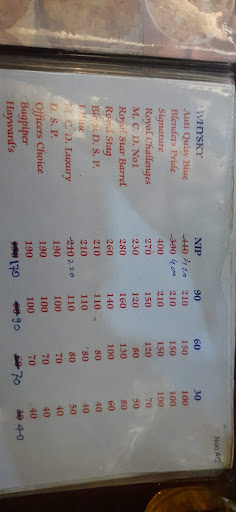 Non AC
WHYSKY NIP 90 60 30
Anti Quity Blue 420 210 150 100
Blenders Pride 400 210 150 100
Signature 400 210 150 100
Royal Challenges 270 150 120 70
M. C. D. No1 230 120 80 50
Royal Star Barrel 280 160 130 80
Royal Stag 260 140 100 60
D. S. P. 210 110 80 40
210 110 80 40
M. C. D. Luxury 210 220 110 80 50
D. S. P. 190 100 70 40
Officers Choice 190 100 70 40
Bagpiper 190 100 70 40
Hayward's 170 90 70 40